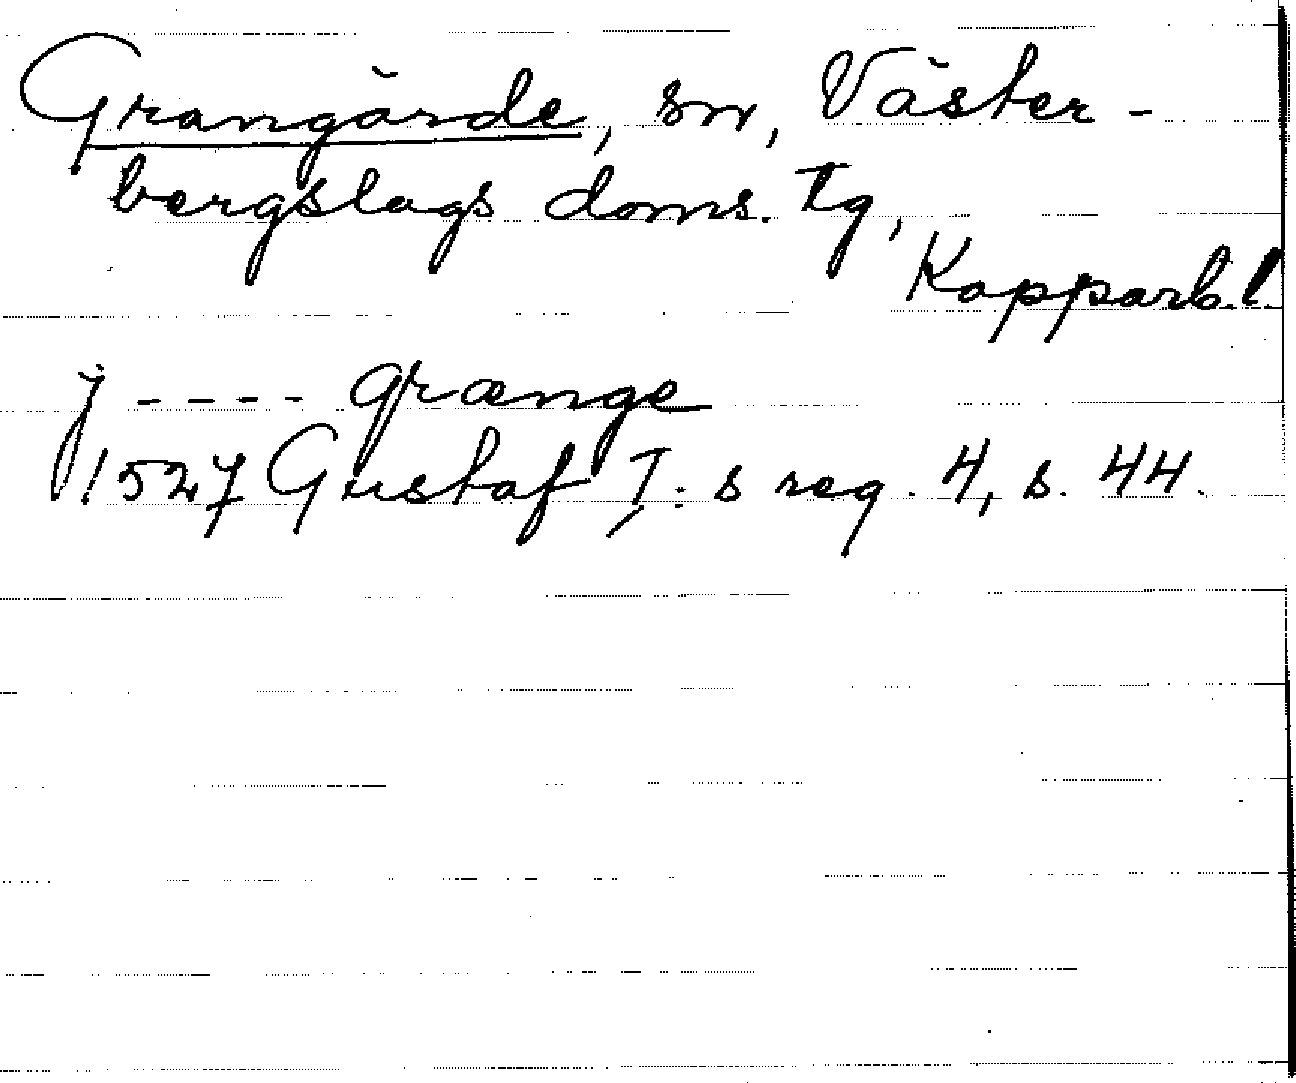 Grangärde, sn, Väster-
bergslags doms. tg,
Kopparb. l.
j ---- grænge
1527 Gustaf I:s reg. 4, s. 44.